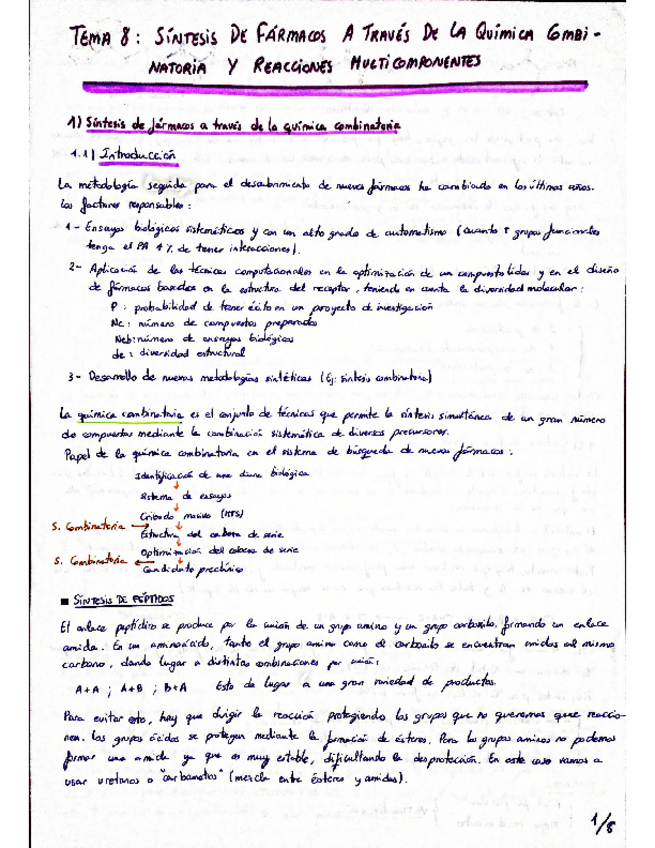 TEMA 8: SÍNTESIS DE FÁRMACOS A TRAVÉS DE LA QUÍMICA COMBI-
NATORIA Y REACCIONES MULTICOMPONENTES
1) Síntesis de fármacos a través de la química combinatoria
1.1) Introducción
La metodología seguida para el descubrimiento de nuevos fármacos ha cambiado en los últimos años.
Los factores responsables:
1- Ensayos biológicos sistemáticos y con un alto grado de automatismo (cuanto ↑ grupos funcionales
tenga el PA ↑ % de tener interacciones).
2- Aplicación de las técnicas computacionales en la optimización de un compuesto líder y en el diseño
de fármacos basados en la estructura del receptor, teniendo en cuenta la diversidad molecular:
P: probabilidad de tener éxito en un proyecto de investigación
Nc: número de compuestos preparados
Neb: número de ensayos biológicos
de: diversidad estructural
3- Desarrollo de nuevas metodologías sintéticas (Ej: síntesis combinatoria)
La química combinatoria es el conjunto de técnicas que permite la síntesis simultánea de un gran número
de compuestos mediante la combinación sistemática de diversos precursores.
Papel de la química combinatoria en el sistema de búsqueda de nuevos fármacos:
Identificación de una diana biológica
↓
Sistema de ensayos
↓
Cribado masivo (HTS)
S. Combinatoria → ↓
Estructura del cabeza de serie
↓
Optimización del cabeza de serie
S. Combinatoria ← ↓
Candidato preclínico
■ SÍNTESIS DE PÉPTIDOS
El enlace peptídico se produce por la unión de un grupo amino y un grupo carboxilo, formando un enlace
amida. En un aminoácido, tanto el grupo amino como el carboxilo se encuentran unidos al mismo
carbono, dando lugar a distintas combinaciones por unión:
A+A ; A+B ; B+A Esto da lugar a una gran variedad de productos.
Para evitar esto, hay que dirigir la reacción protegiendo los grupos que no queremos que reaccio-
nen. Los grupos ácidos se protegen mediante la formación de ésteres. Pero los grupos aminos no podemos
formar una amida ya que es muy estable, dificultando la desprotección. En este caso vamos a
usar uretanos o "carbamatos" (mezcla entre ésteres y amidas).
1/8